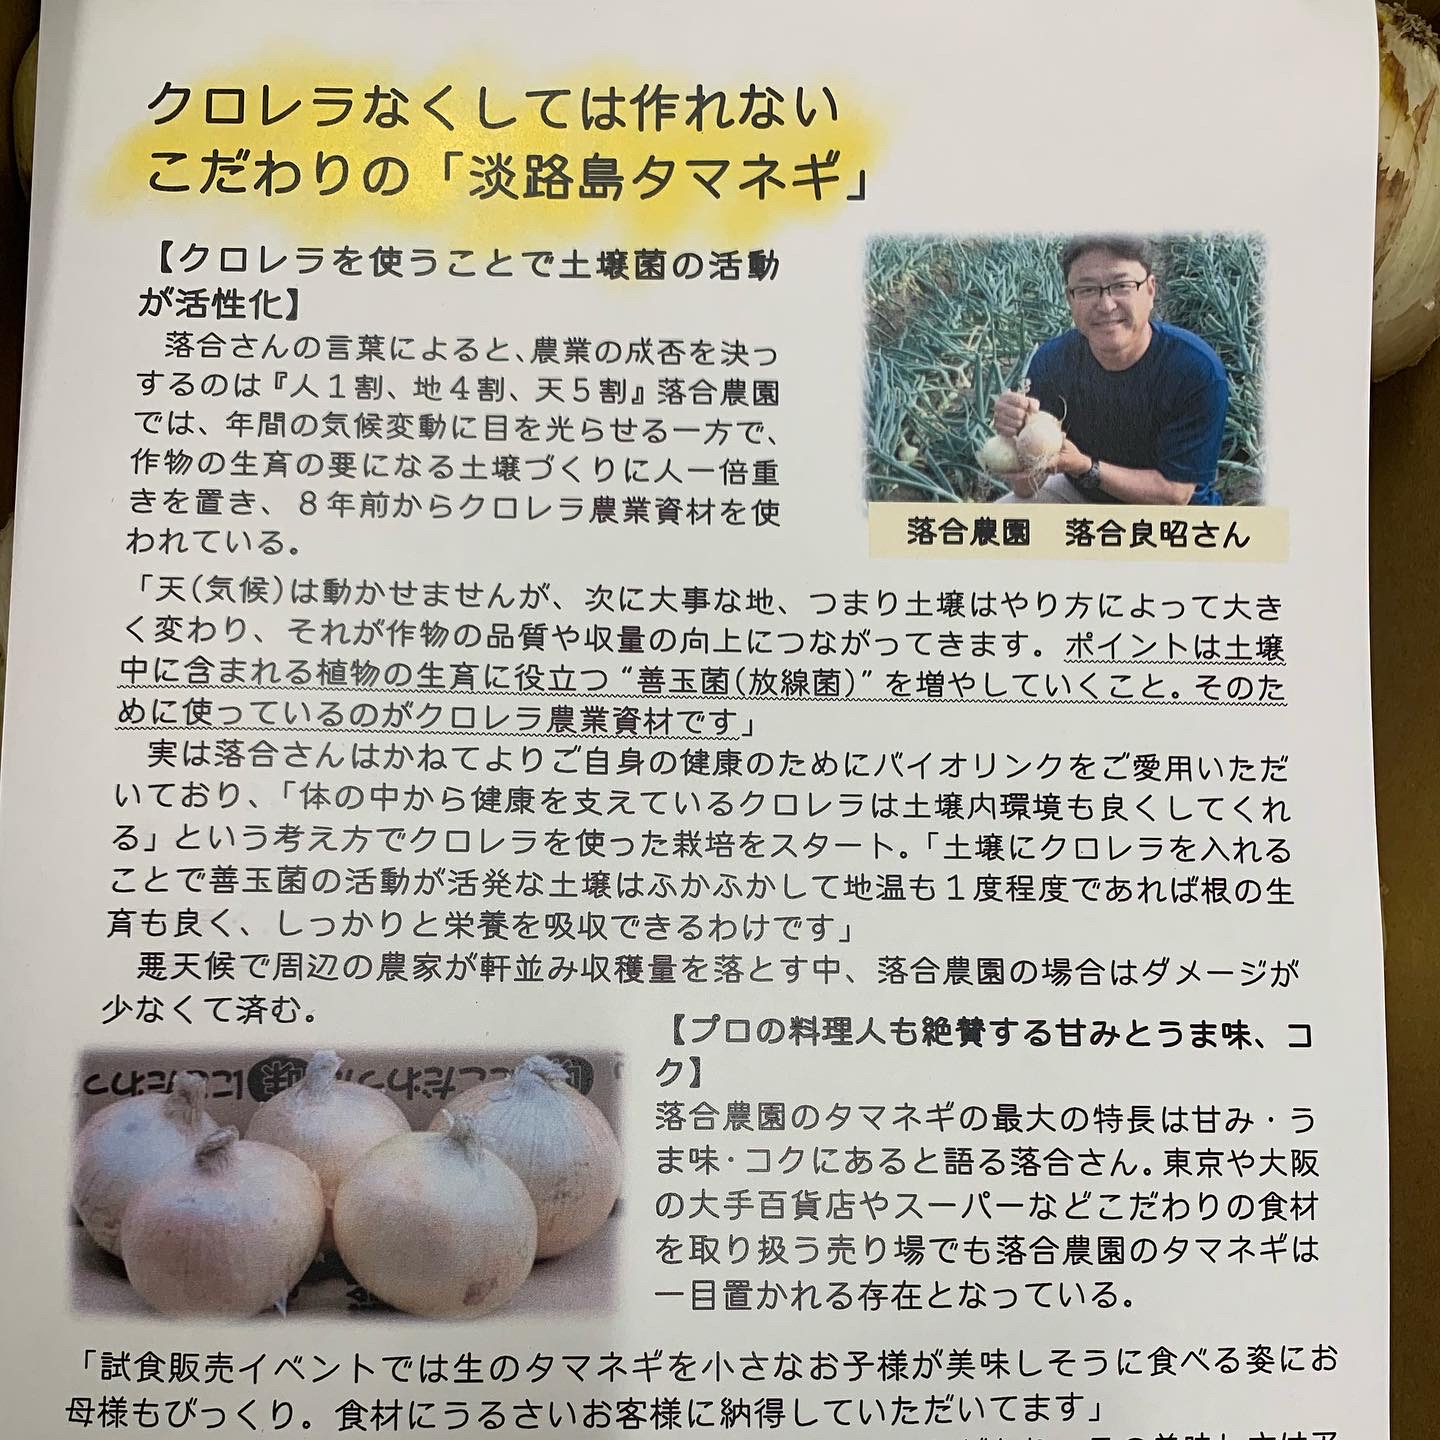 クロレラなくしては作れない
こだわりの「淡路島タマネギ」
【クロレラを使うことで土壌菌の活動
が活性化】
落合さんの言葉によると、農業の成否を決っ
するのは『人１割、地４割、天５割』落合農園
では、年間の気候変動に目を光らせる一方で、
作物の生育の要になる土壌づくりに人一倍重
きを置き、８年前からクロレラ農業資材を使
われている。
落合農園　落合良昭さん
「天(気候)は動かせませんが、次に大事な地、つまり土壌はやり方によって大き
く変わり、それが作物の品質や収量の向上につながってきます。ポイントは土壌
中に含まれる植物の生育に役立つ“善玉菌(放線菌)”を増やしていくこと。そのた
めに使っているのがクロレラ農業資材です」
実は落合さんはかねてよりご自身の健康のためにバイオリンクをご愛用いただ
いており、「体の中から健康を支えているクロレラは土壌内環境も良くしてくれ
る」という考え方でクロレラを使った栽培をスタート。「土壌にクロレラを入れる
ことで善玉菌の活動が活発な土壌はふかふかして地温も１度程度であれば根の生
育も良く、しっかりと栄養を吸収できるわけです」
悪天候で周辺の農家が軒並み収穫量を落とす中、落合農園の場合はダメージが
少なくて済む。
【プロの料理人も絶賛する甘みとうま味、コ
ク】
落合農園のタマネギの最大の特長は甘み・う
ま味・コクにあると語る落合さん。東京や大阪
の大手百貨店やスーパーなどこだわりの食材
を取り扱う売り場でも落合農園のタマネギは
一目置かれる存在となっている。
味にこだわっ
「試食販売イベントでは生のタマネギを小さなお子様が美味しそうに食べる姿にお
母様もびっくり。食材にうるさいお客様に納得していただいてます」